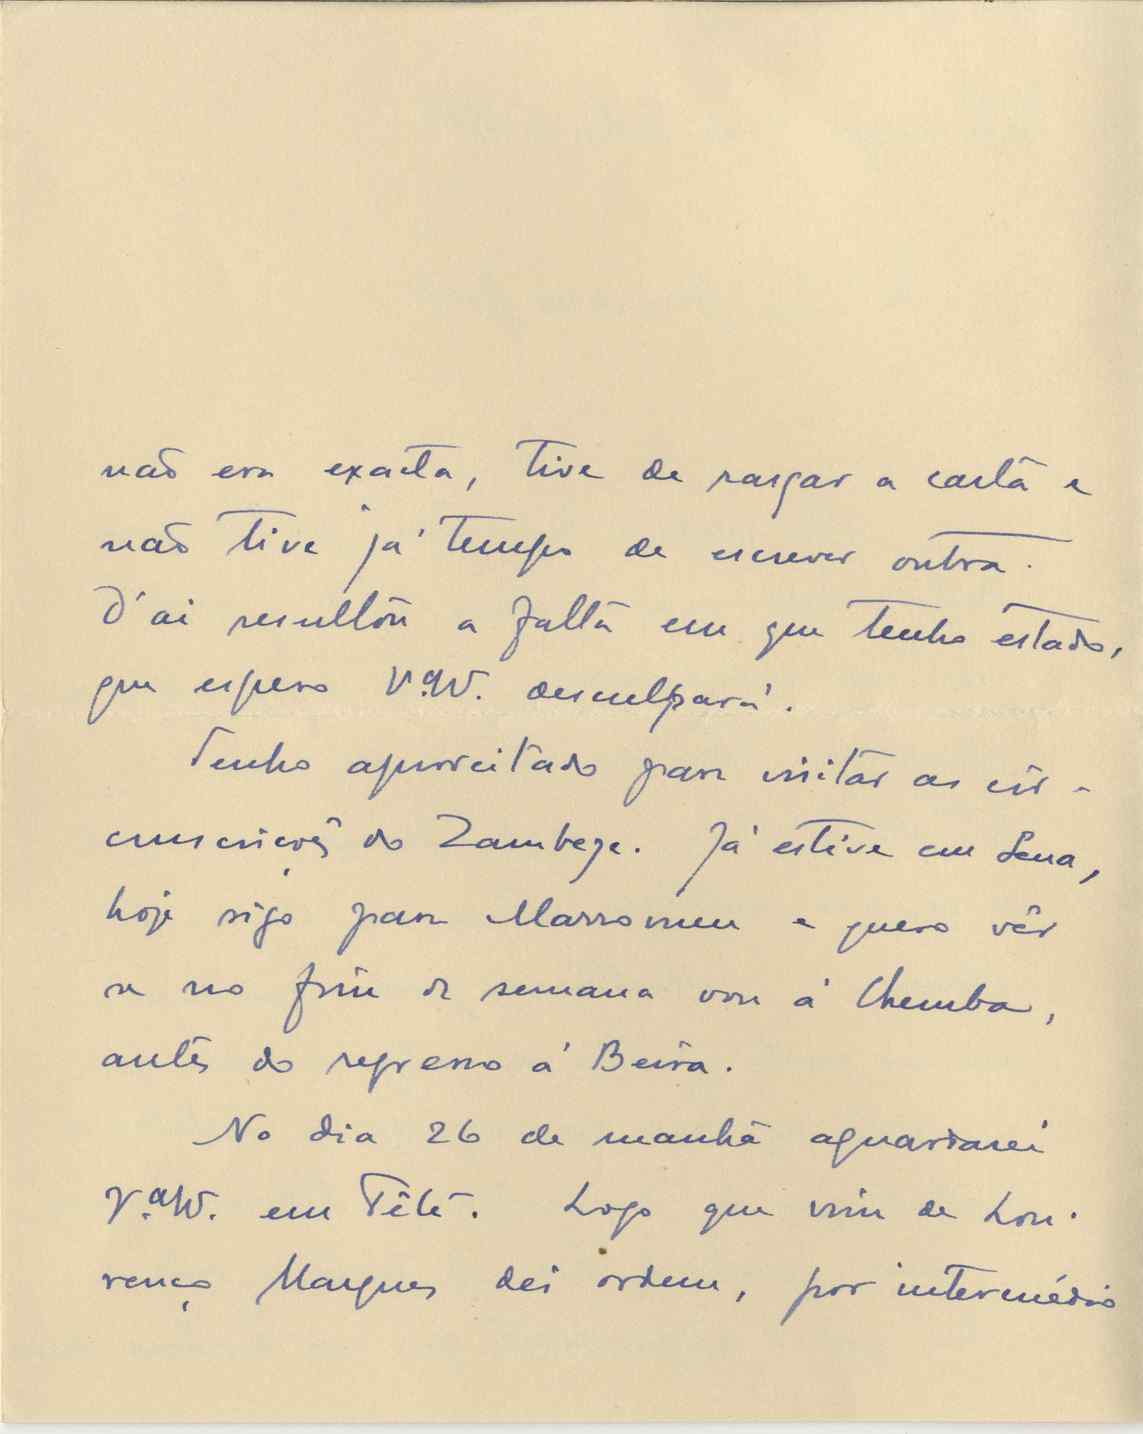 não era exacta, tive de rasgar a carta e
não tive já tempo de escrever outra.
D'aí resultou a falta em que tenho estado,
que espero V.ª desculpará.
Tenho aproveitado para visitar as cir-
cunscrições do Zambeze. Já estive em Sena,
hoje sigo para Marromeu e quero vêr
se no fim de semana vou á Chemba,
antes do regresso á Beira.
No dia 26 de manhã aguardarei
V.ª em Tête. Logo que vim de Lou-
renço Marques dei ordem, por intermédio